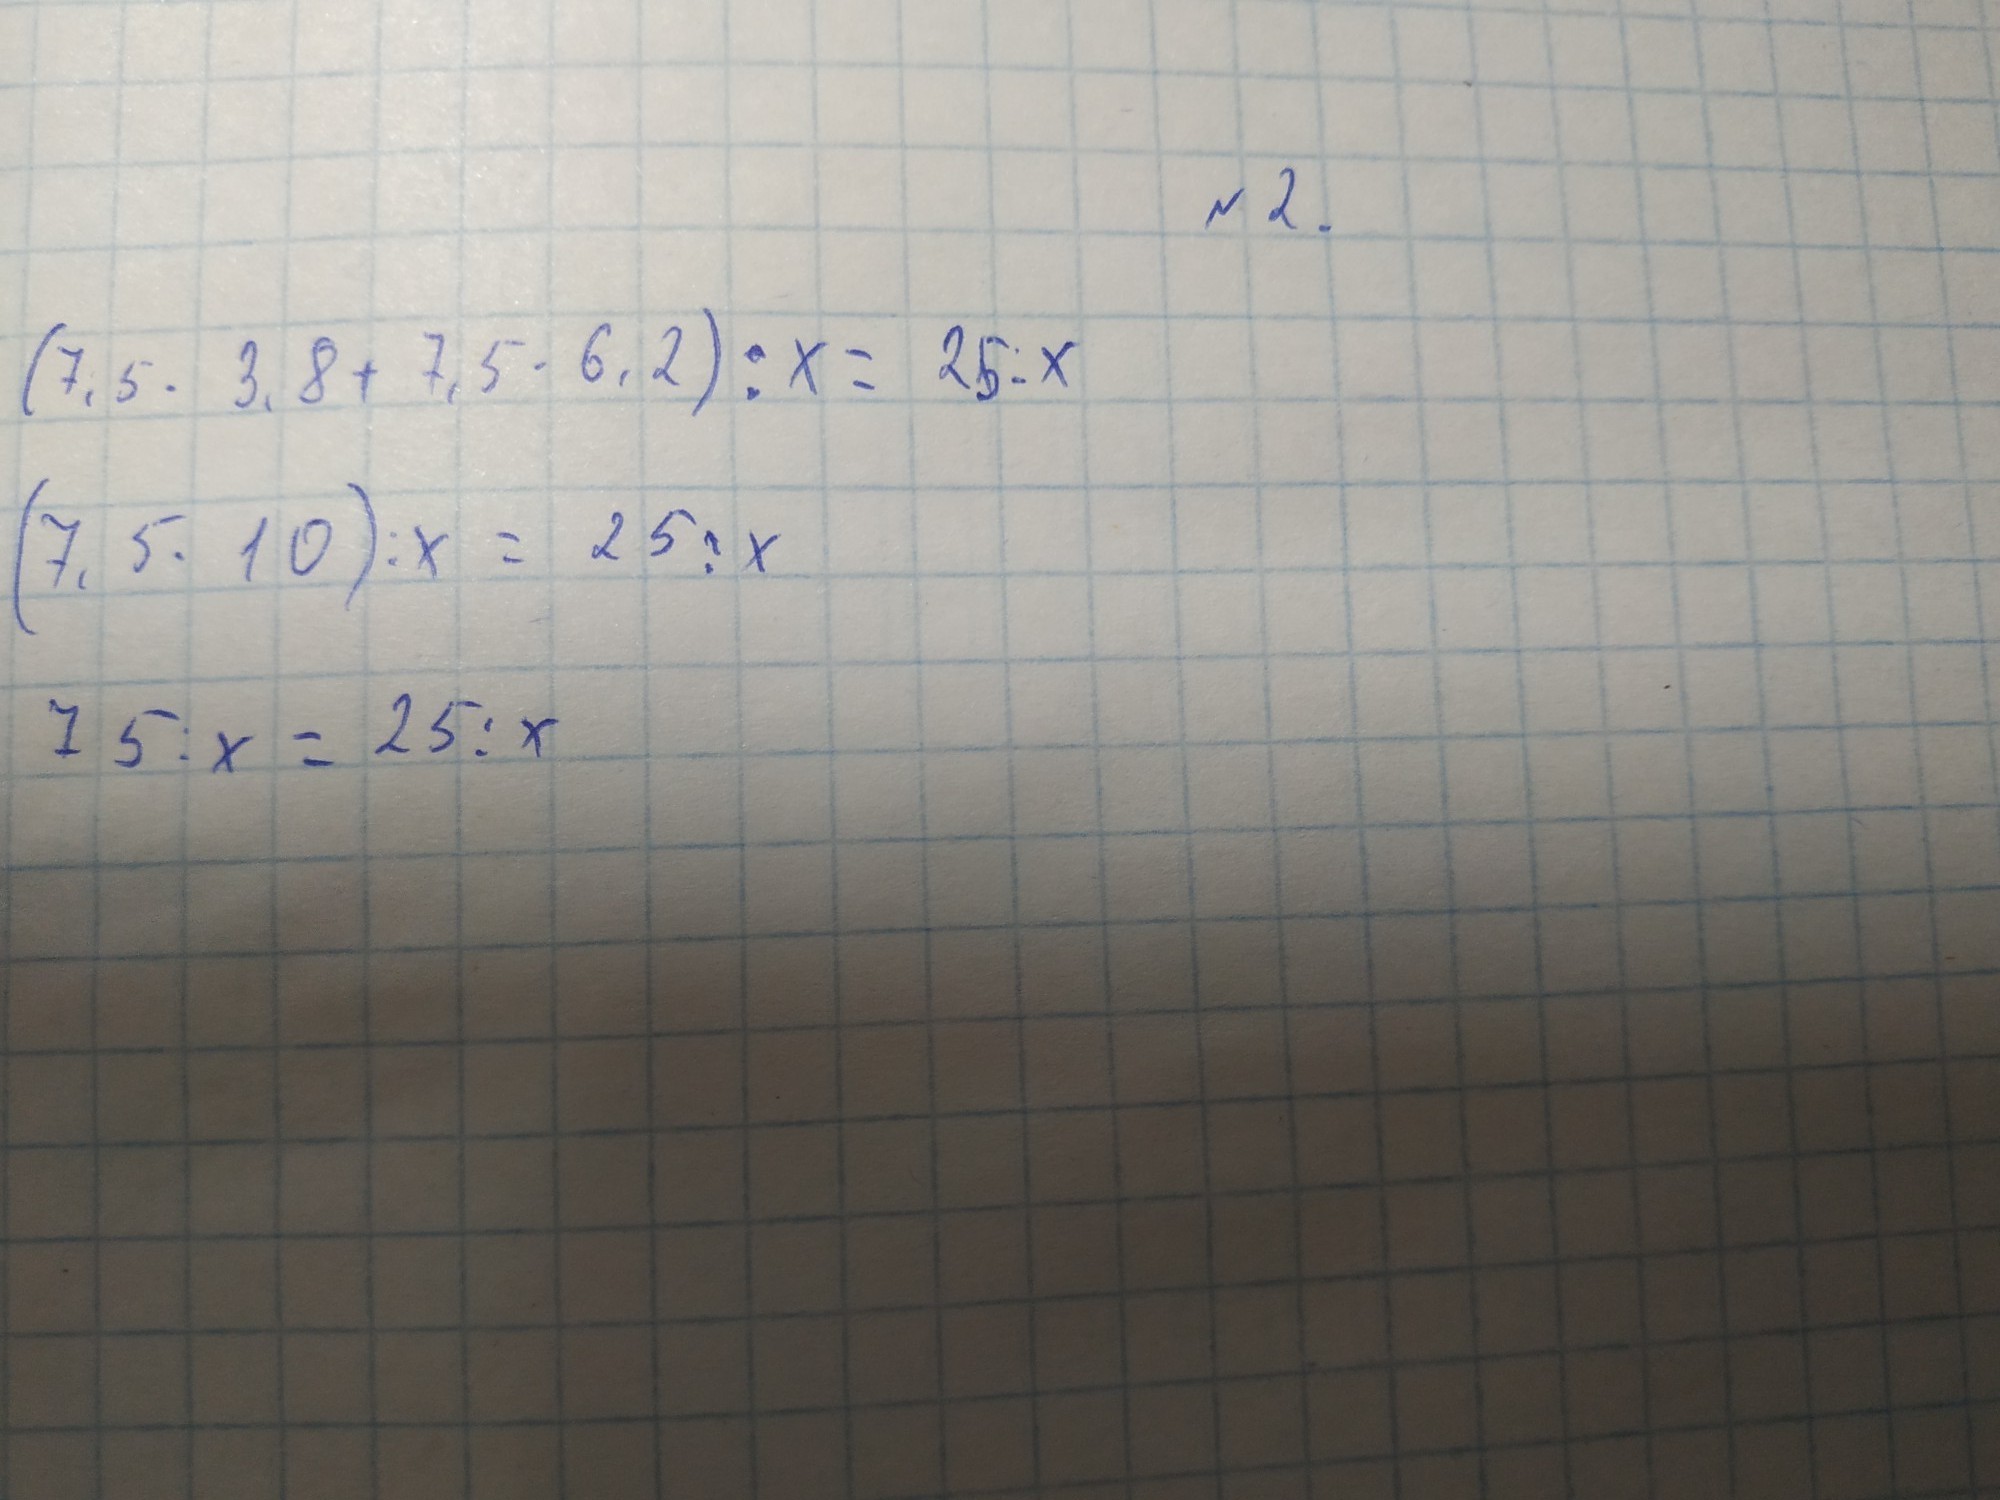 №2.
(7,5 · 3,8 + 7,5 · 6,2) : x = 25 : x
(7,5 · 10) : x = 25 : x
75 : x = 25 : x